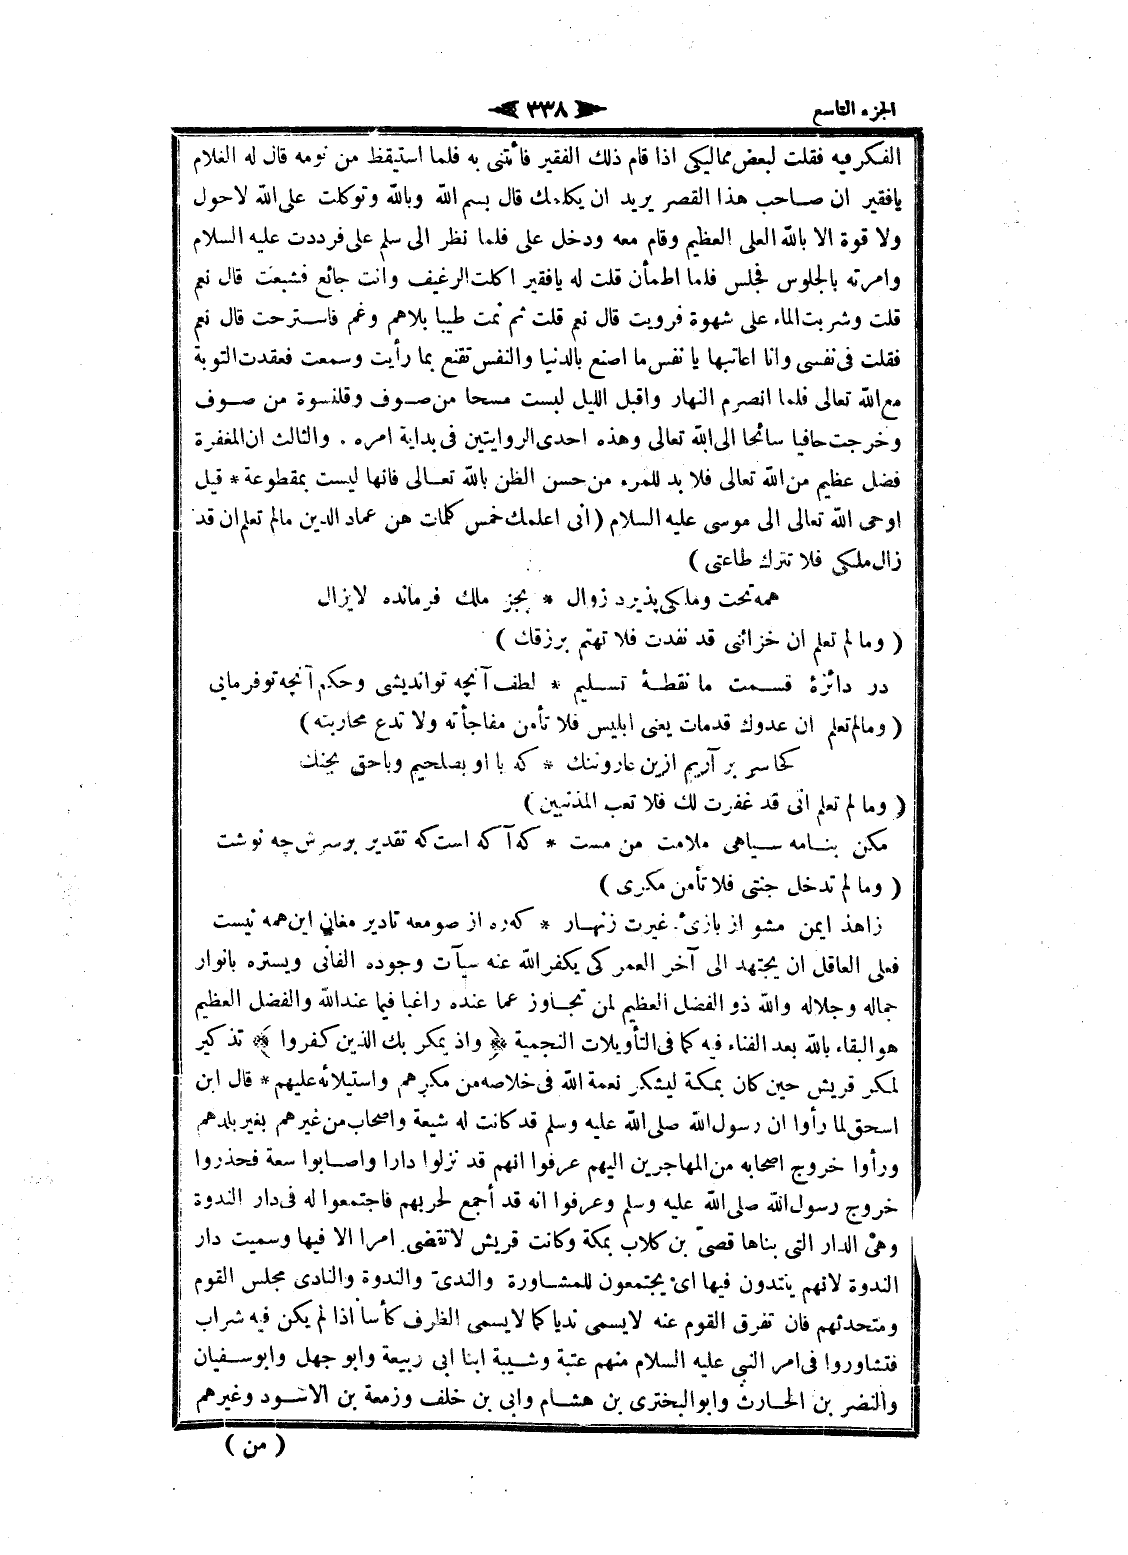 الجزء التاسع
٣٣٨
الفكر فيه فقلت لبعض مماليكى اذا قام ذلك الفقير فأتنى به فلما استيقظ من نومه قال له الغلام
يافقير ان صاحب هذا القصر يريد ان يكلمك قال بسم الله وبالله وتوكلت على الله لاحول
ولا قوة الا بالله العلى العظيم وقام معه ودخل على فلما نظر الى سلم على فرددت عليه السلام
وامرته بالجلوس فجلس فلما اطمأن قلت له يافقير اكلت الرغيف وانت جائع فشبعت قال نعم
قلت وشربت الماء على شهوة فرويت قال نعم قلت ثم نمت طيبا بلاهم وغم فاسترحت قال نعم
فقلت فى نفسى وانا اعاتبها يا نفس ما اصنع بالدنيا والنفس تقنع بما رأيت وسمعت فعقدت التوبة
مع الله تعالى فلما انصرم النهار واقبل الليل لبست مسحا من صوف وقلنسوة من صوف
وخرجت حافيا سائحا الى الله تعالى وهذه احدى الروايتين فى بداية امره . والثالث ان المغفرة
فضل عظيم من الله تعالى فلا بد للمرء من حسن الظن بالله تعالى فانها ليست بمقطوعة * قيل
اوحى الله تعالى الى موسى عليه السلام ( انى اعلمك خمس كلمات هن عماد الدين مالم تعلم ان قد
زال ملكى فلا تترك طاعتى )
همه تخت وملكى پذيرد زوال * بجز ملك فرمانده لايزال
( وما لم تعلم ان خزائنى قد نفدت فلا تهتم برزقك )
در دائرۀ قسمت ما نقطۀ تسليم * لطف آنچه توانديشى وحكم آنچه توفرمايى
( ومالم تعلم ان عدوك قدمات يعنى ابليس فلا تأمن مفاجأته ولا تدع محاربته )
كجا سر بر آريم ازين عاروننك * كه با او بصلحيم وباحق بجنك
( وما لم تعلم انى قد غفرت لك فلا تعب المذنبين )
مكن بنامه سياهى ملامت من مست * كه آكه است كه تقدير بر سرش چه نوشت
( وما لم تدخل جنتى فلا تأمن مكرى )
زاهد ايمن مشو از بازئ غيرت زنهار * كه ره از صومعه تادير مغان اين همه نيست
فعلى العاقل ان يجتهد الى آخر العمر كى يكفر الله عنه سيآت وجوده الفانى ويستره بانوار
جماله وجلاله والله ذو الفضل العظيم لمن تجاوز عما عنده راغبا فيما عندالله والفضل العظيم
هو البقاء بالله بعد الفناء فيه كما فى التأويلات النجمية ﴿ واذ يمكر بك الذين كفروا ﴾ تذكير
لمكر قريش حين كان بمكة ليشكر نعمة الله فى خلاصه من مكرهم واستيلائه عليهم * قال ابن
اسحق لما رأوا ان رسول الله صلى الله عليه وسلم قد كانت له شيعة واصحاب من غيرهم بغير بلدهم
ورأوا خروج اصحابه من المهاجرين اليهم عرفوا انهم قد نزلوا دارا واصابوا سعة فحذروا
خروج رسول الله صلى الله عليه وسلم وعرفوا انه قد أجمع لحربهم فاجتمعوا له فى دار الندوة
وهى الدار التى بناها قصىّ بن كلاب بمكة وكانت قريش لاتقضى امرا الا فيها وسميت دار
الندوة لانهم ينتدون فيها اى يجتمعون للمشاورة والندى والندوة والنادى مجلس القوم
ومتحدثهم فان تفرق القوم عنه لايسمى نديا كما لايسمى الظرف كأسا اذا لم يكن فيه شراب
فتشاوروا فى امر النبى عليه السلام منهم عتبة وشيبة ابنا ابى ربيعة وابو جهل وابوسفيان
والنضر بن الحارث وابو البخترى بن هشام وابى بن خلف وزمعة بن الاسود وغيرهم
( من )